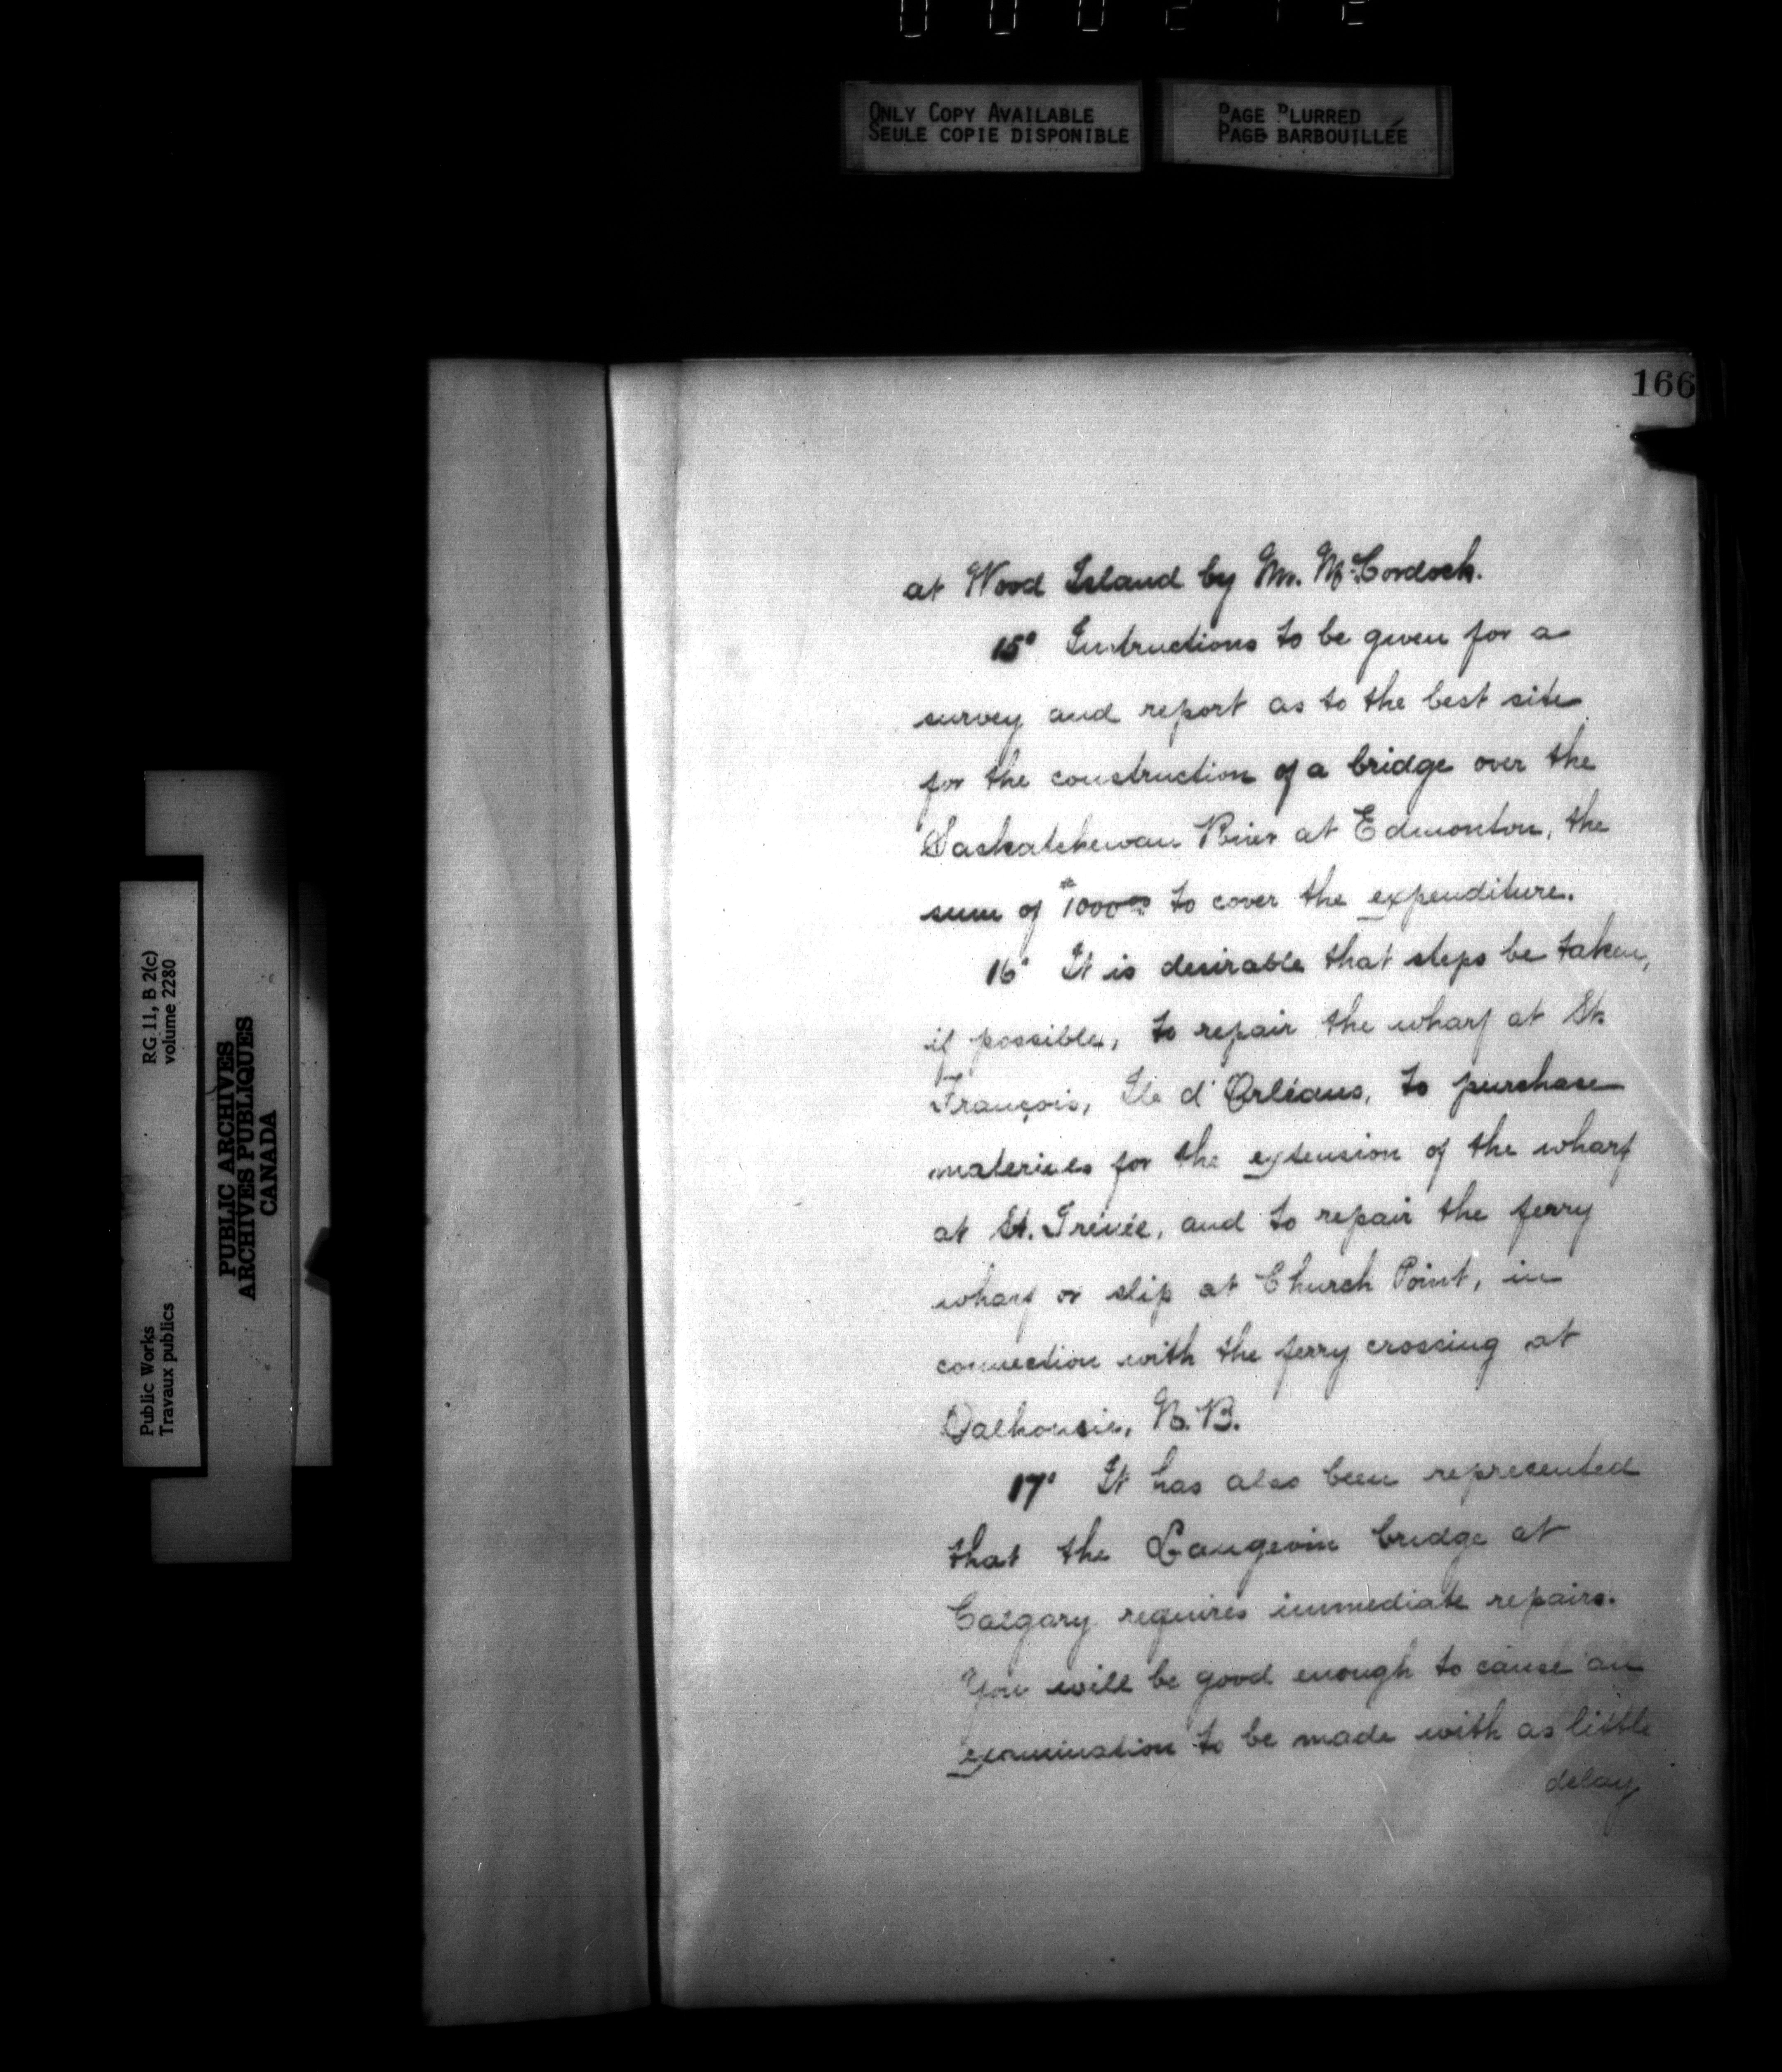 ONLY COPY AVAILABLE
SEULE COPIE DISPONIBLE
PAGE BLURRED
PAGE BARBOUILLÉE
166
at Wood Island by Mr. McCordock.
15° Instructions to be given for a
survey and report as to the best site
for the construction of a bridge over the
Saskatchewan River at Edmonton, the
sum of $1000.00 to cover the expenditure.
16° It is desirable that steps be taken,
if possible, to repair the wharf at St.
François, Ile d'Orléans, to purchase
materials for the extension of the wharf
at St. Irénée, and to repair the ferry
wharf or slip at Church Point, in
connection with the ferry crossing at
Dalhousie, N.B.
17° It has also been represented
that the Langevin bridge at
Calgary requires immediate repairs.
You will be good enough to cause an
examination to be made with as little
delay
RG 11, B 2(c)
volume 2280
PUBLIC ARCHIVES
ARCHIVES PUBLIQUES
CANADA
Public Works
Travaux publics